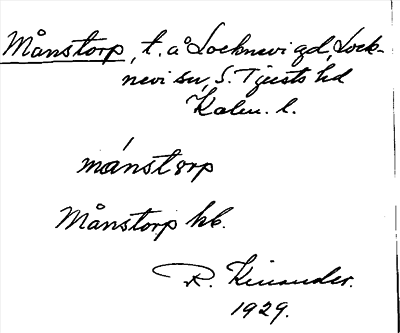 Månstorp, t. å Locknevi gd, Lock-
nevi sn, S. Tjusts hd
Kalm. l.
mánstorp
Månstorp hb.
R. Kinander.
1929.